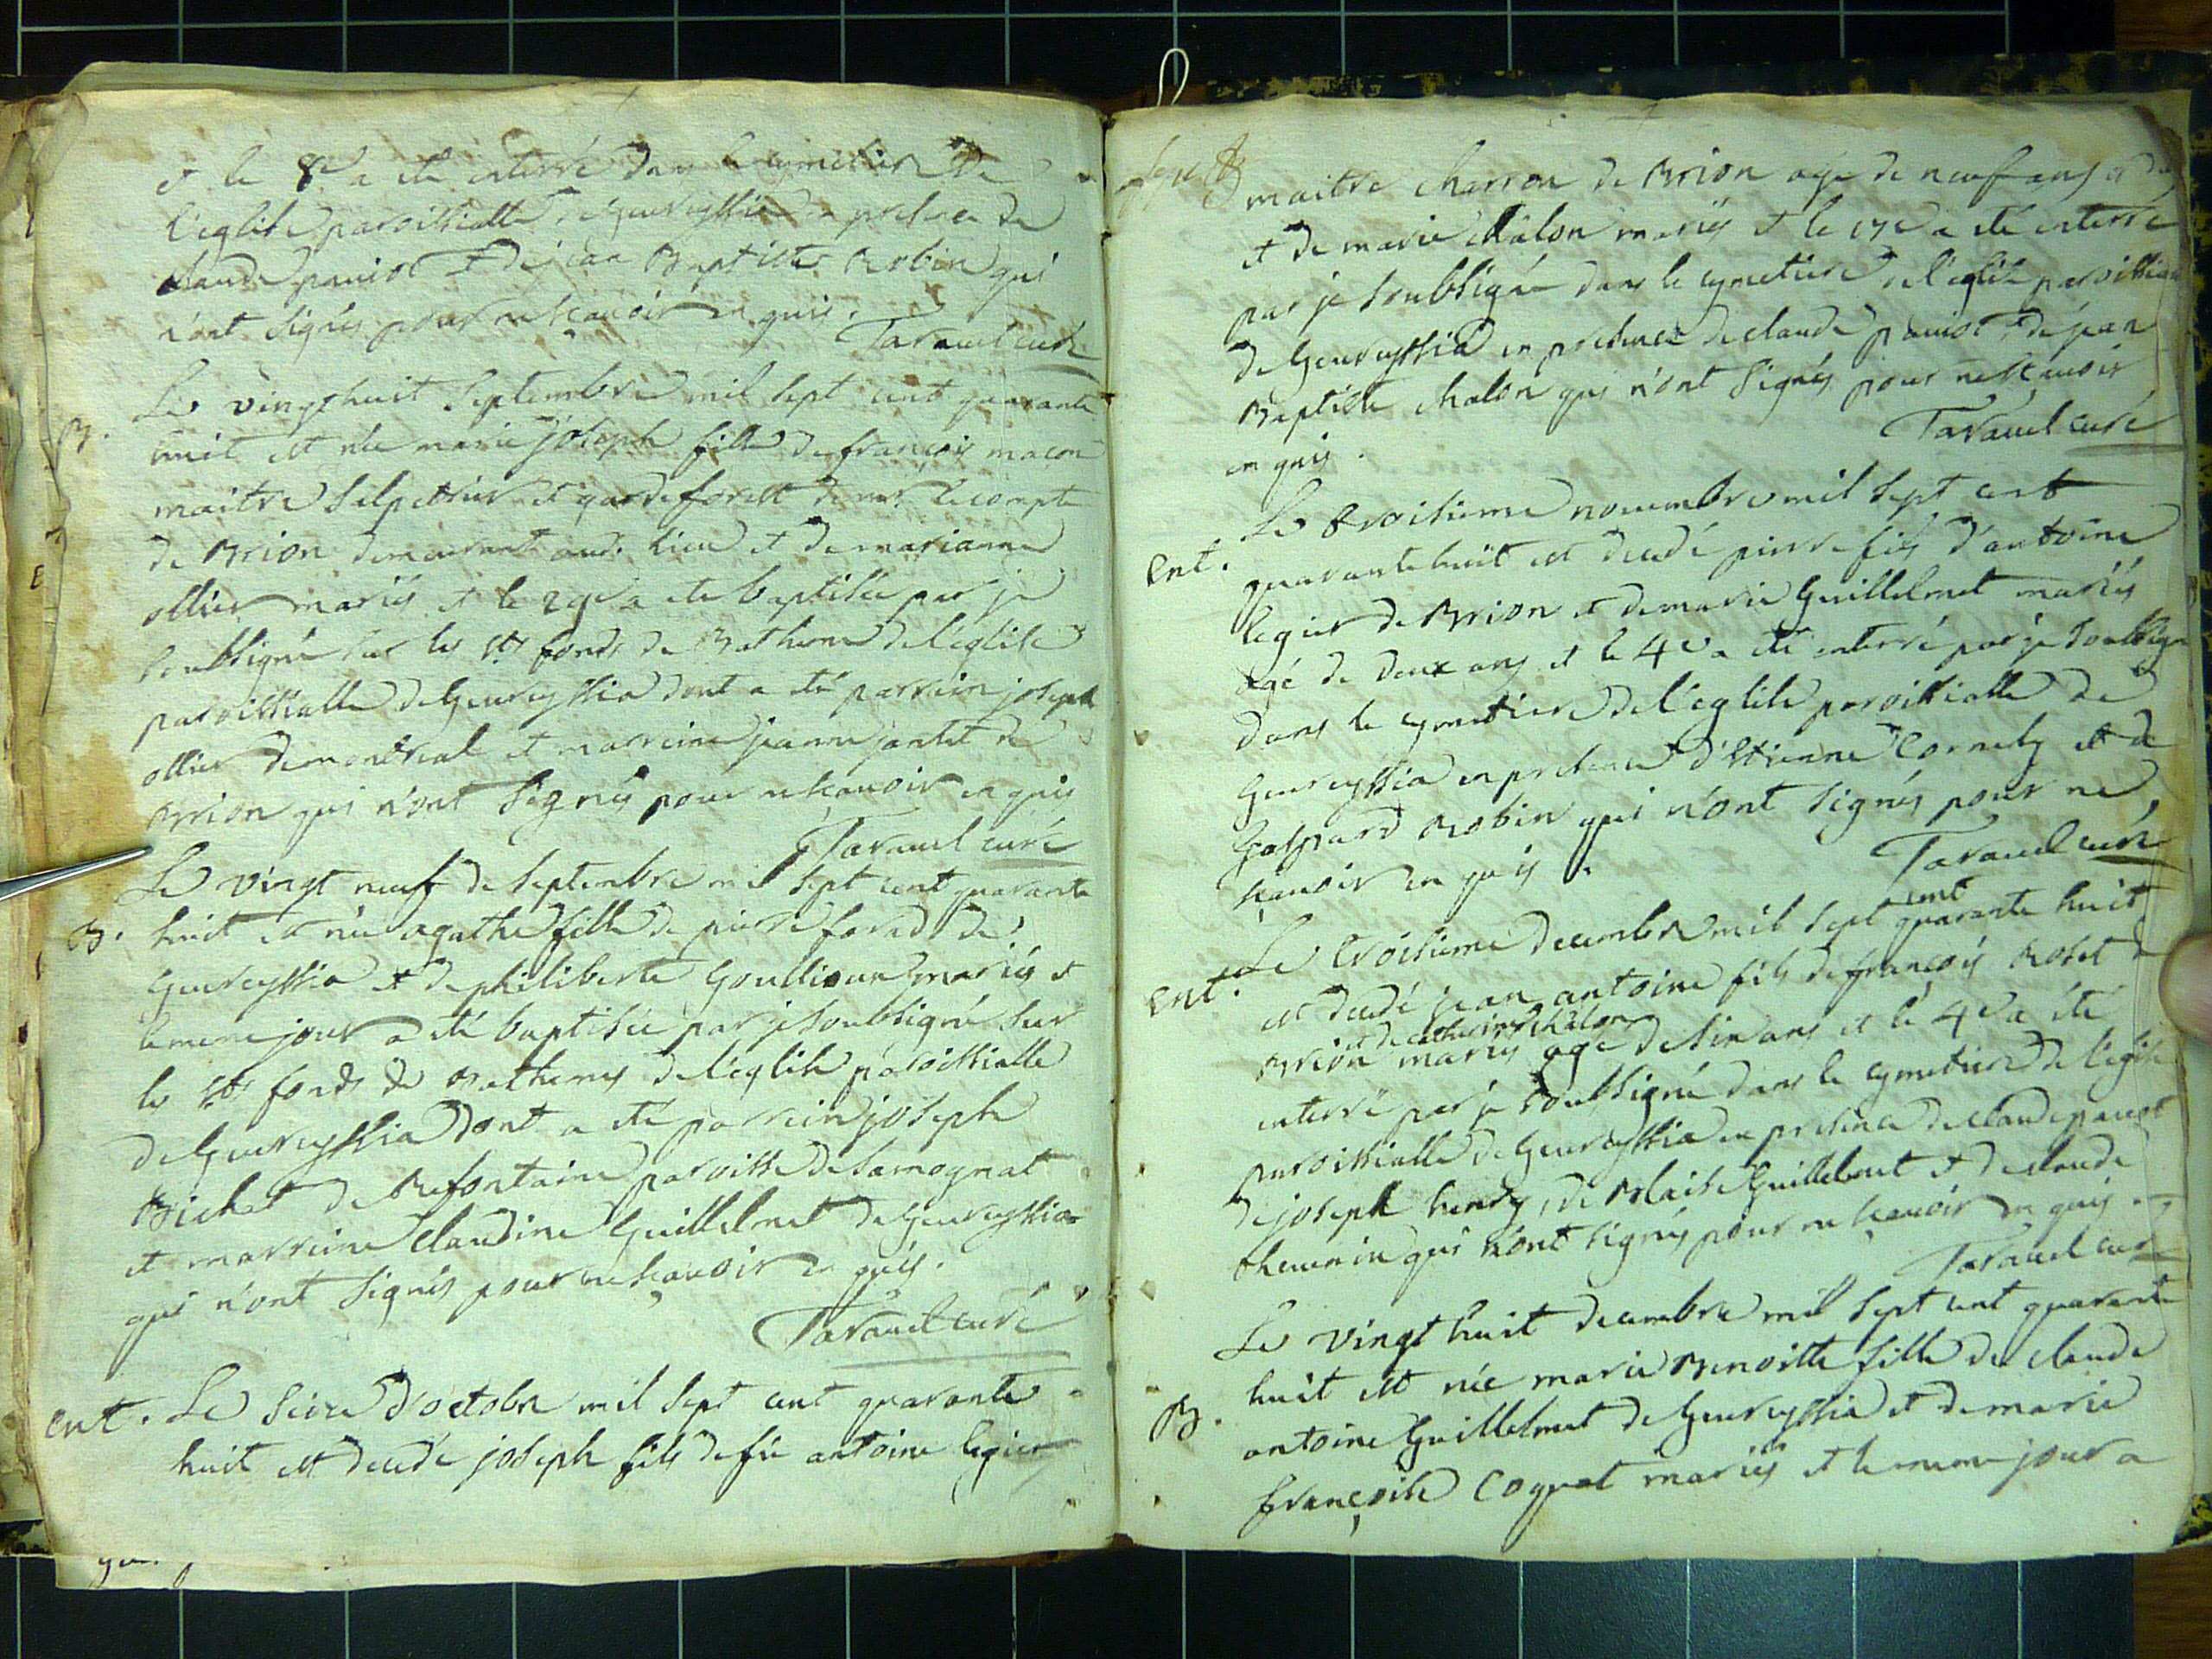 et le 8e a été enterré dans le cymetiere de
l'eglise paroissialle de Geureyssia en presence de
claude paviot et de jean Baptiste Robin qui
n'ont signés pour ne scavoir en quis.
Taravel curé
B. Le vingt huit Septembre mil sept cent quarante
huit est née marie joseph fille de françois macon
maitre Salpetrier et garde forest de mr. le compte
de Brion demeurant aud. lieu et de marianne
ollier mariés et le 29e a ete baptisée par je
soubsigné sur les sts fonds de Batheme de l'eglise
paroissialle de Geureyssia dont a été parrein joseph
ollier de montreal et marreine jeanne jantet de
Brion qui n'ont signés pour ne scavoir en quis
Taravel curé
Le vingt neuf de Septembre mil sept cent quarante
B. huit est née agathe fille de pierre forad de
Geureyssia et de philiberte Goullioux mariés et
le meme jour a été baptisée par je soubsigné sur
les sts fonds de Bathemes de l'eglise paroissialle
de Geureyssia dont a été parrein joseph
Bichat de Befontaine paroisse de Samognat
et marreine claudine Guillelmet de Geureyssia
qui n'ont signés pour ne scavoir en quis.
Taravel curé
ent. Le seize d'octobre mil sept cent quarante
huit est decedé joseph fils de fu antoine legier
maitre charron de Brion agé de neuf ans
et de marie chalon mariés et le 17e a été enterré
par je soubsigné dans le cymetiere de l'eglise paroissialle
de Geureyssia en presence de claude paviot et de jean
Baptiste chalon qui n'ont signés pour ne scavoir
en quis.
Taravel curé
Le troisieme novembre mil sept cent
ent. quarante huit est decedé pierre fils d'antoine
legier de Brion et de marie Guillelmet mariés
agé de deux ans et le 4e a été enterré par je soubsigné
dans le cymetiere de l'eglise paroissialle de
Geureyssia en presence d'Etienne Cornety et de
Gaspard Robin qui n'ont signés pour ne
scavoir en quis.
Taravel curé
Le troisieme decembre mil sept cent quarante huit
ent. est decedé jean antoine fils de françois Roset de
Brion et de catherine chalon mariés agé de six ans et le 4e a été
enterré par je soubsigné dans le cymetiere de l'eglise
paroissialle de Geureyssia en presence de claude paviot
de joseph henry, de Blaise Guillelmet et de claude
thevenin qui n'ont signés pour ne scavoir en quis.
Taravel curé
Le vingt huit decembre mil sept cent quarante
B. huit est née marie Benoitte fille de claude
antoine Guillelmet de Geureyssia et de marie
françoise Cognat mariés et le meme jour a